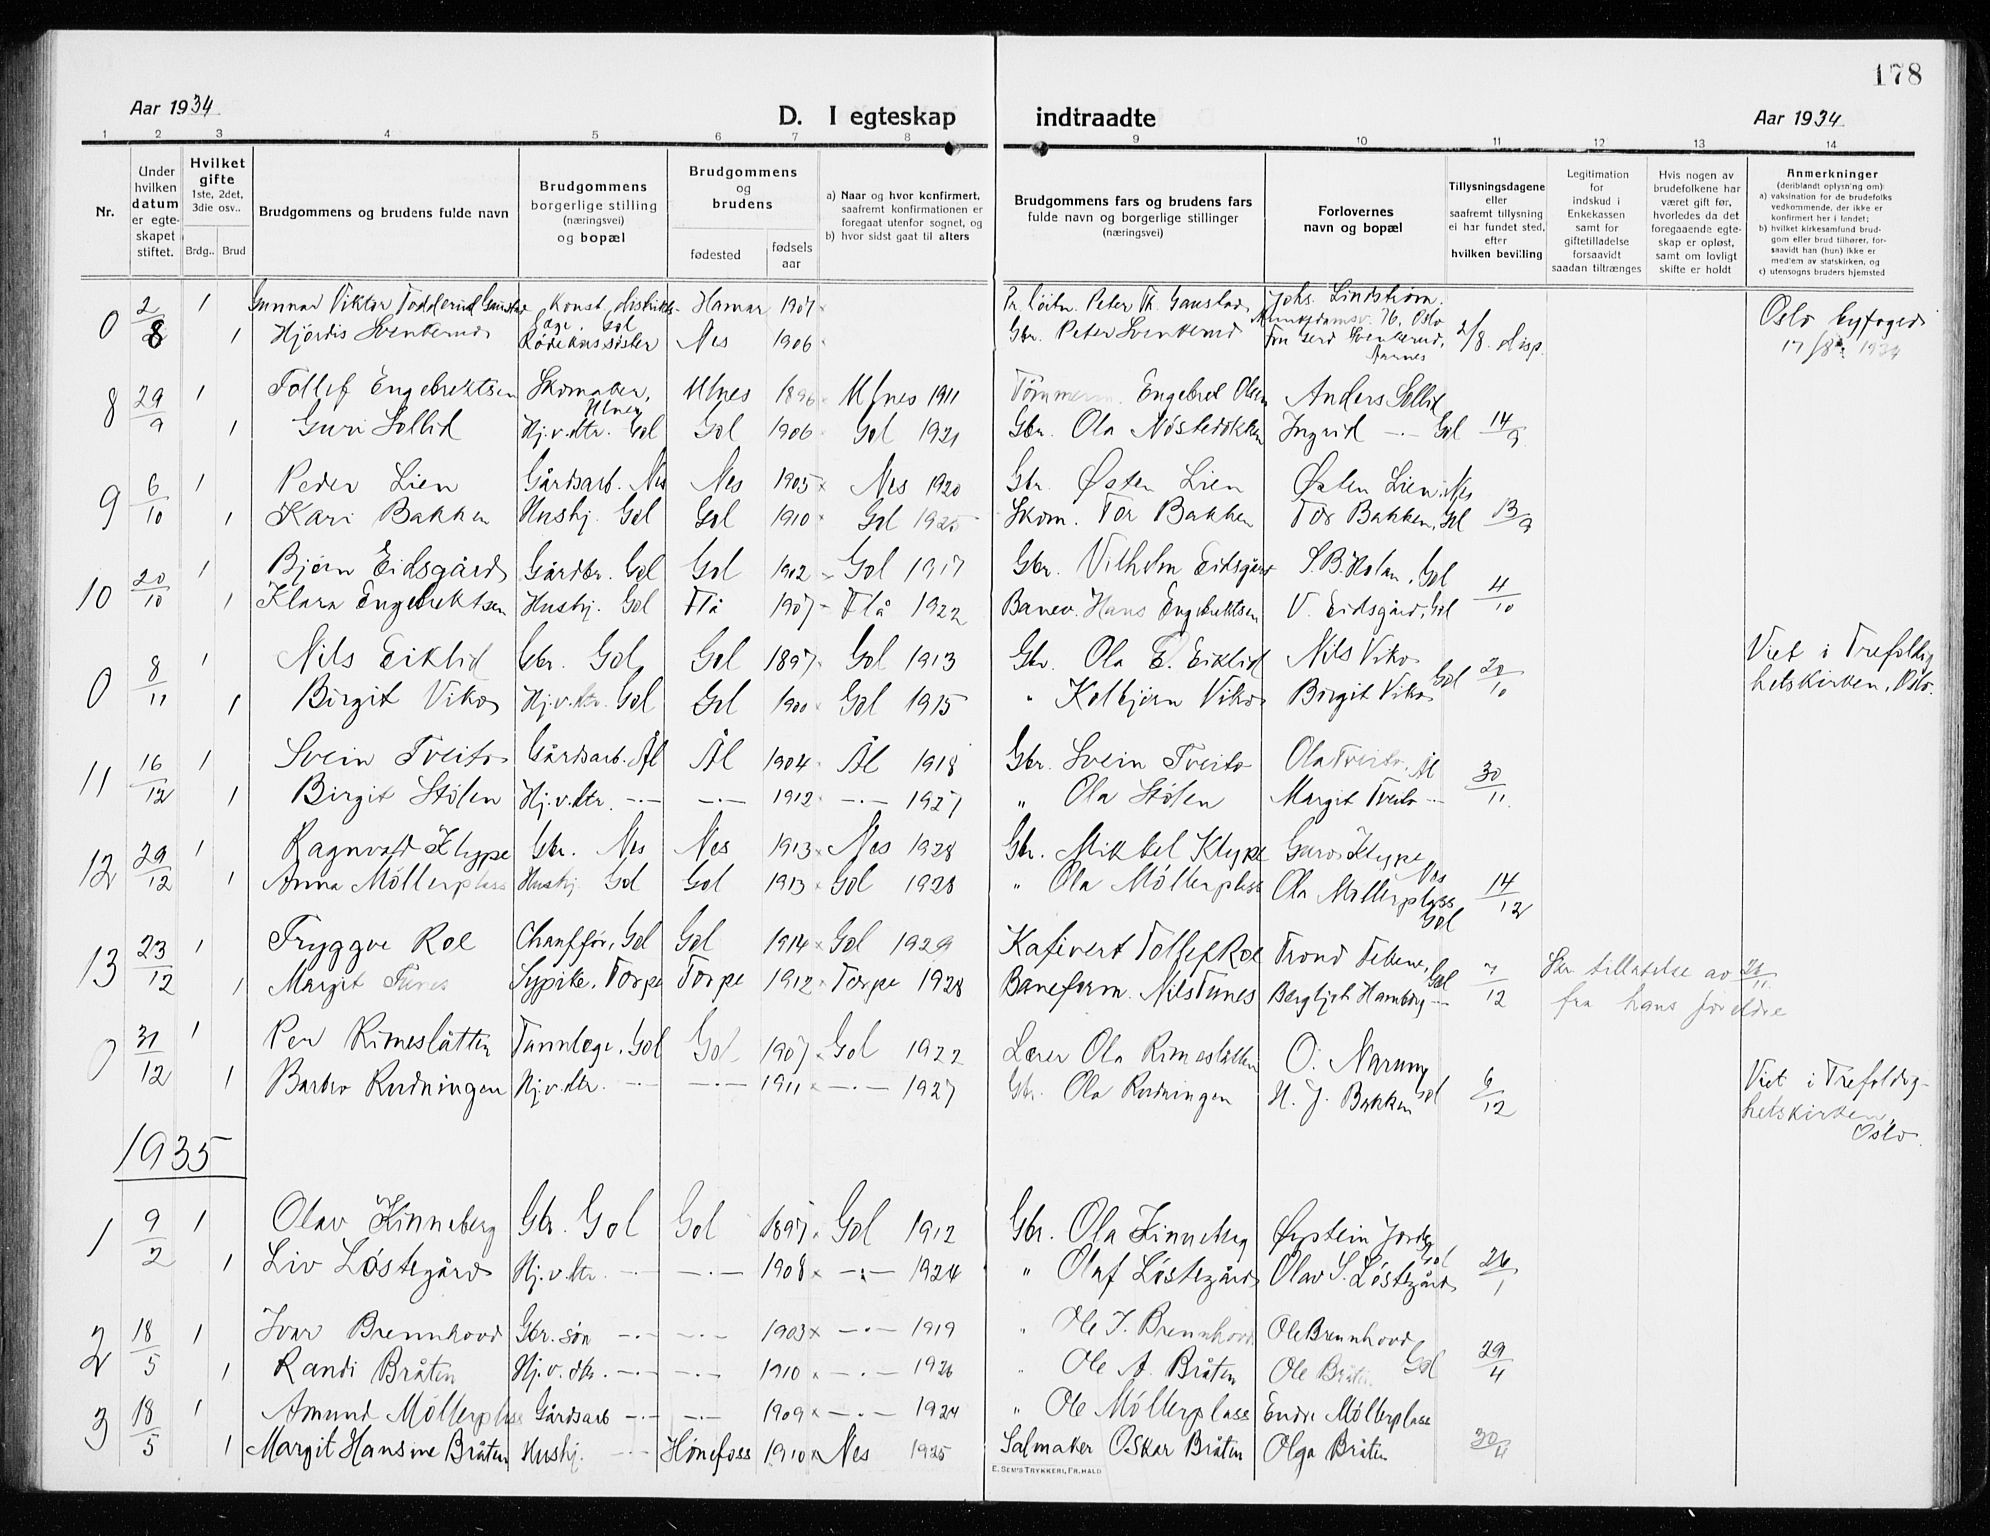 178
Aar 1934
D. I egteskap indtraadte
Aar 1934
1 2 3 4 5 6 7 8 9 10 11 12 13 14
Nr.
Under hvilken datum er egteskapet stiftet.
Hvilket gifte 1ste, 2det, 3die osv..
Brdg.. Brud
Brudgommens og brudens fulde navn
Brudgommens borgerlige stilling (næringsvei) og bopæl
Brudgommens og brudens
fødested
fødselsaar
a) Naar og hvor konfirmert, saafremt konfirmationen er foregaat utenfor sognet, og
b) hvor sidst gaat til alters
Brudgommens fars og brudens fars fulde navn og borgerlige stillinger (næringsvei)
Forlovernes navn og bopæl
Tillysningsdagene eller saafremt tillysning ei har fundet sted, efter hvilken bevilling
Legitimation for indskud i Enkekassen samt for giftetilladelse forsaavidt saadan tiltrænges
Hvis nogen av brudefolkene har været gift før, hvorledes da det foregaaende egteskap er opløst, samt om lovligt skifte er holdt
Anmerkninger (deriblandt oplysning om)
a) vaksination for de brudefolks vedkommende, der ikke er konfirmert her i landet;
b) hvilket kirkesamfund brudgom eller brud tilhører, forsaavidt han (hun) ikke er medlem av statskirken, og
c) utensogns bruders hjemsted
0 2/8 1 Gunnar Viktor Gaustad Konst. distriktslæge, Gol Hamar 1907 Peter Th. Gaustad Johs. Lindström, Munkedamsv. 76, Oslo Oslo byfoged
1 Hjørdis Svenkerud Rødekorssøster Nes 1906 Gbr. Peter Svenkerud Gerd Svenkerud, 2/8 disp. 17/8 1934
8 29/9 1 Tollef Engebrektsen Skomaker, Ulnes Ulnes 1896 Ulnes 1911 Engebret Olsen Anders Sollid
1 Guri Sollid Hj.v.dtr. Gol Gol 1906 Gol 1921 Gbr. Ola Nøstedokken Ingrid -·- Gol 14/9
9 6/10 1 Peder Lien Gårdsarb. Nes Nes 1905 Nes 1920 Gbr. Østen Lien Østen Lien, Nes
1 Kari Bakken Hushj. Gol Gol 1910 Gol 1925 Skom. Tor Bakken Tor Bakken, Gol 13/9
10 20/10 1 Bjørn Eidsgård Gårdbr. Gol Gol 1902 Gol 1917 Gbr. Vilhelm Eidsgård S. B. Holan, Gol
1 Klara Engebrektsen Hushj. Gol Flå 1907 Flå 1922 Banev. Hans Engebrektsen V. Eidsgård, Gol 4/10
0 8/11 1 Nils Eiklid Gbr. Gol Gol 1897 Gol 1913 Gbr. Ola E. Eiklid Nils Viko Viet i Trefoldig
1 Birgit Viko Hj.v.dtr. Gol Gol 1900 Gol 1915 " Kolbjørn Viko Birgit Viko Gol 20/10 hetskirken, Oslo.
11 16/12 1 Svein Tveito Gårdsarb. Ål Ål 1904 Ål 1918 Gbr. Svein Tveito Ola Tveito, Ål
1 Birgit Stølen Hj.v.dtr. -·- -·- 1912 -·- 1927 " Ola Stølen Margit Tveito -·- 30/11
12 29/12 1 Ragnvald Klype Gbr. Nes Nes 1913 Nes 1928 Gbr. Mikkel Klype Klype Nes
1 Anna Møllerplass Hushj. Gol Gol 1913 Gol 1928 " Ola Møllerplass Ola Møllerplass Gol 14/12
13 23/12 1 Tryggve Roe Chauffør, Gol Gol 1914 Gol 1929 Kafevert Tollef Roe Trond Gol Skr. tillatelse av 28/11
1 Margit Tunes Sypike, Torpe Torpe 1912 Torpe 1928 Baneform. Nils Tunes Bergljot Hamborg -·- 7/12 fra hans foreldre
0 31/12 1 Per Rimeslåtten Tannlege, Gol Gol 1907 Gol 1922 Lærer Ola Rimeslåtten O. Narum Viet i Trefoldig-
1 Barbro Rudningen Hj.v.dtr. -·- -·- 1911 -·- 1927 Gbr. Ola Rudningen H. J. Bakken Gol 6/12 hetskirken, Oslo.
1935
1 9/2 1 Olav Kinneberg Gbr. Gol Gol 1897 Gol 1912 Gbr. Ola Kinneberg Øystein Jorde, Gol
1 Liv Løstegård Hj.v.dtr. -·- -·- 1908 -·- 1924 " Olaf Løstegård Olav S. Løstegård 26/1
2 18/5 1 Ivar Brennhovd Gbr. søn -·- -·- 1903 -·- 1919 " Ole I. Brennhovd Ole Brennhovd
1 Randi Bråten Hj.v.dtr. -·- -·- 1910 -·- 1926 " Ole A. Bråten Ole Bråten Gol 29/4
3 18/5 1 Amund Møllerplass Gårdsarb -·- -·- 1909 -·- 1924 " Ole Møllerplass Endre Møllerplass
1 Margit Hansine Bråten Hushj. -·- Hønefoss 1910 Nes 1925 Salmaker Oskar Bråten Olga Bråten 30/4
E. SEM'S TRYKKERI, FR.HALD